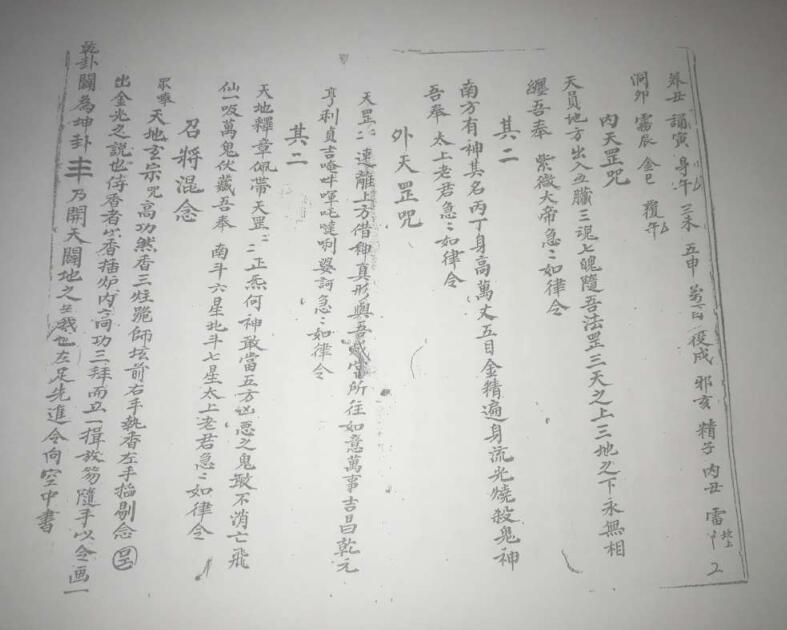 丑 誦寅 身午 三未 五申 役戌 邪亥 精子 内丑 雷
洞卯 霧辰 金巳 覆午
内天罡咒
天員地方出入五臟三魂七魄隨吾法罡三天之上三地之下永無相
纏吾奉 紫微大帝急〻如律令
其二
南方有神其名丙丁身高萬丈五目金精遍身流光燒殺鬼神
吾奉 太上老君急〻如律令
外天罡咒
天罡〻速離上方借神真形與吾所往如意萬事吉昌乾元
亨利貞吉唵吽㖇吒噠唎婆訶急〻如律令
其二
天地釋章佩帶天罡〻正炁何神敢當五方凶惡之鬼敢不消亡飛
仙一吸萬鬼伏藏吾奉 南斗六星北斗七星太上老君急〻如律令
召將混念
天地玄宗咒高功然香三炷跪師坛前右手執香左手搯剔念
出金光之説也侍香者以香插炉内高功三拜而立一揖放笏隨手以令画一
乾卦闢為坤卦丰乃開天闢地之 左足先進令向空中書
2